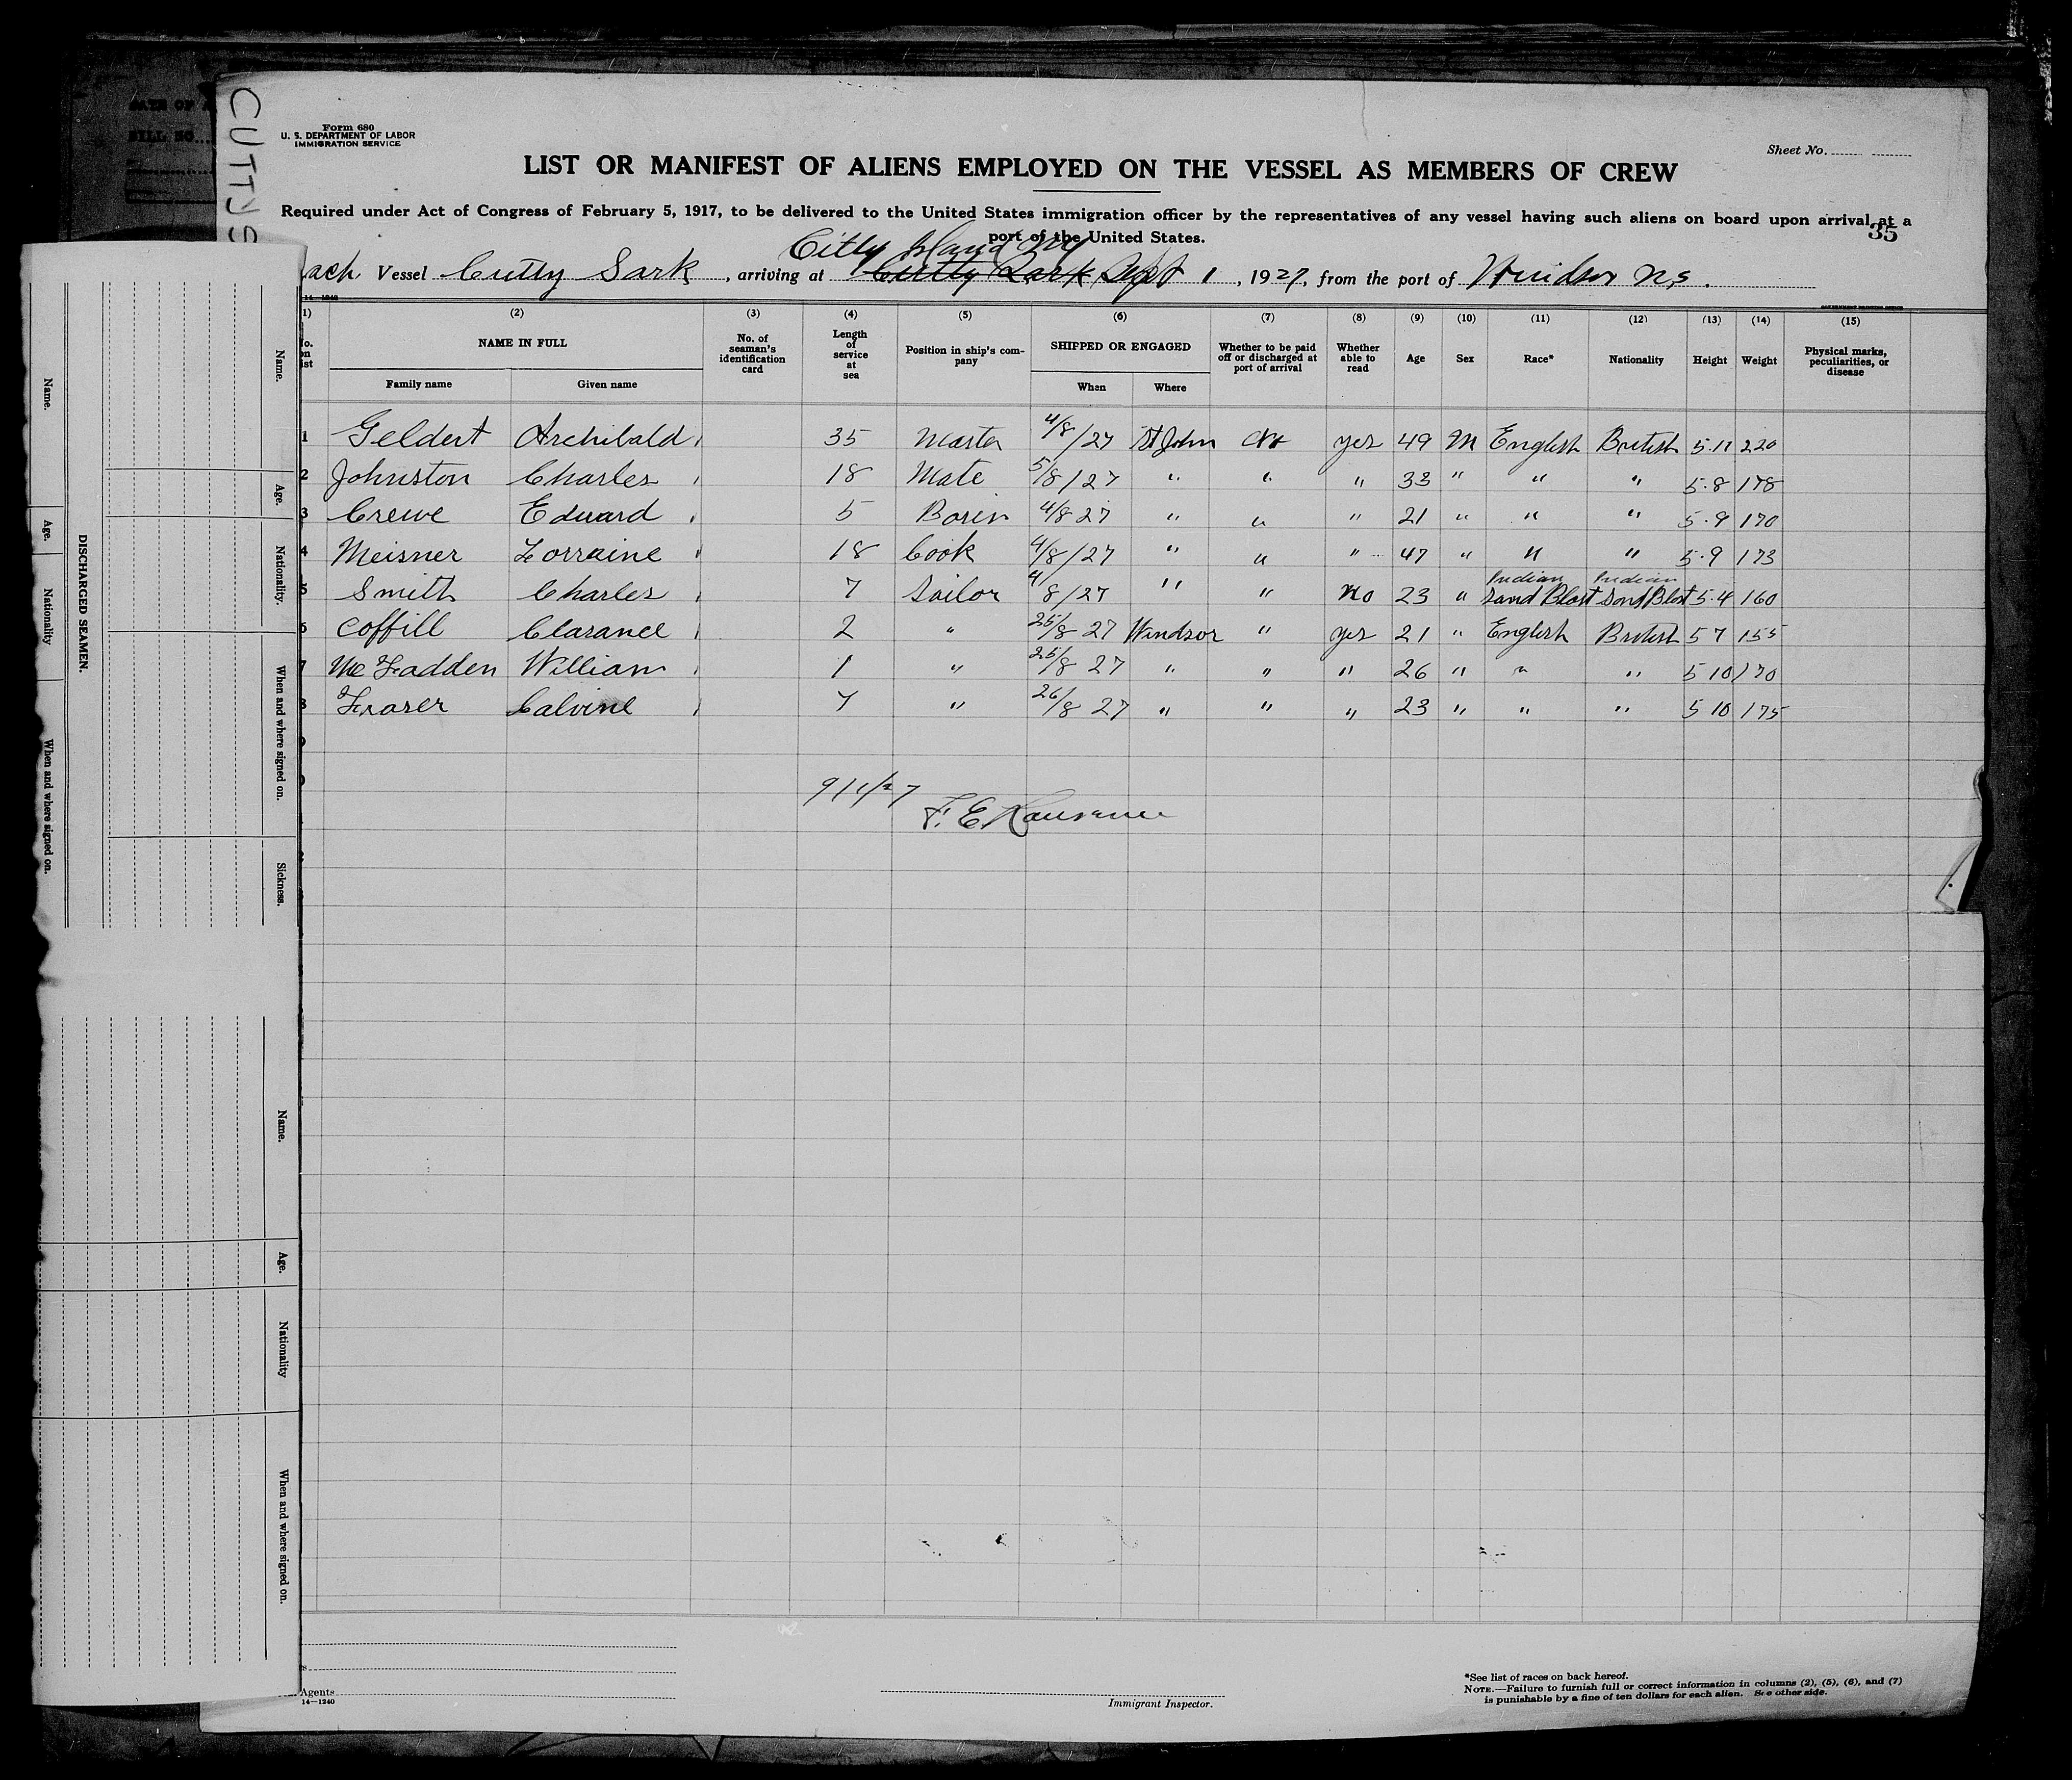 CUTTY S
Form 680
U. S. DEPARTMENT OF LABOR
IMMIGRATION SERVICE
Sheet No.
LIST OR MANIFEST OF ALIENS EMPLOYED ON THE VESSEL AS MEMBERS OF CREW
Required under Act of Congress of February 5, 1917, to be delivered to the United States immigration officer by the representatives of any vessel having such aliens on board upon arrival at a
port of the United States.
35
Citty Island NY
ach Vessel Cutty Sark, arriving at Cutty Sark Sept 1, 1927, from the port of Windsor N.S.
14—1240
(1) (2) (3) (4) (5) (6) (7) (8) (9) (10) (11) (12) (13) (14) (15)
NAME IN FULL No. of seaman's identification card Length of service at sea Position in ship's company SHIPPED OR ENGAGED Whether to be paid off or discharged at port of arrival Whether able to read Age Sex Race* Nationality Height Weight Physical marks, peculiarities, or disease
Family name Given name When Where
1 Geldert Archibald 35 Master 4/8/27 St John yes 49 M English British 5.11 220
2 Johnston Charles 18 Mate 5/8/27 " " " 33 " " " 5.8 178
3 Crewe Edward 5 Bosin 4/8 27 " " " 21 " " " 5.9 170
4 Meisner Lorraine 18 Cook 4/8/27 " " " 47 " " " 5.9 173
Indian Indian
5 Smith Charles 7 Sailor 4/8/27 " " No 23 " 5.4 160
6 Coffill Clarance 2 " 25/8 27 Windsor " yes 21 " English British 5 7 155
7 McFadden William 1 " 25/8 27 " " " 26 " " " 5 10 170
8 Fraser Calvine 7 " 26/8 27 " " " 23 " " " 5 10 175
9/1/27
F. E.
Agents
14—1240
Immigrant Inspector.
*See list of races on back hereof.
NOTE.—Failure to furnish full or correct information in columns (2), (5), (6), and (7)
is punishable by a fine of ten dollars for each alien. See other side.
DISCHARGED SEAMEN.
Name.
Age.
Nationality.
When and where signed on.
Sickness.
Name.
Age.
Nationality
When and where signed on.
Name.
Age.
Nationality
When and where signed on.